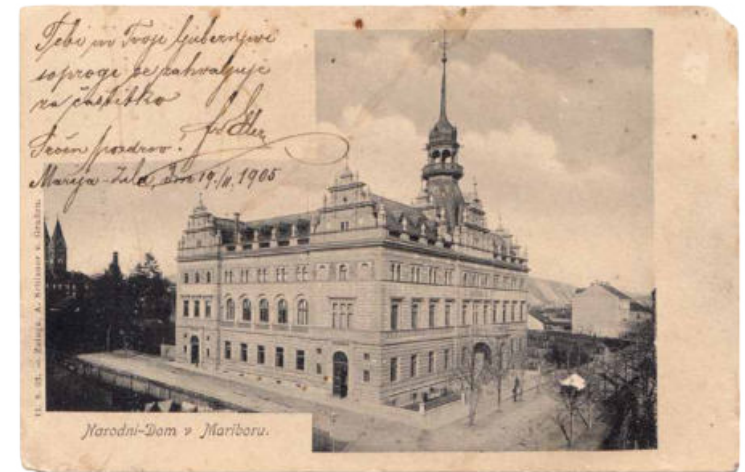 Tebi in Tvoji ljubeznjivi
soprogi se zahvaljuje
za čestitko
Srčen pozdrav.
Marija-Zila, dne 19./II. 1905
Narodni-Dom v Mariboru.
11. 8. 03. — Zaloga, A. Schlauer v Gradcu.